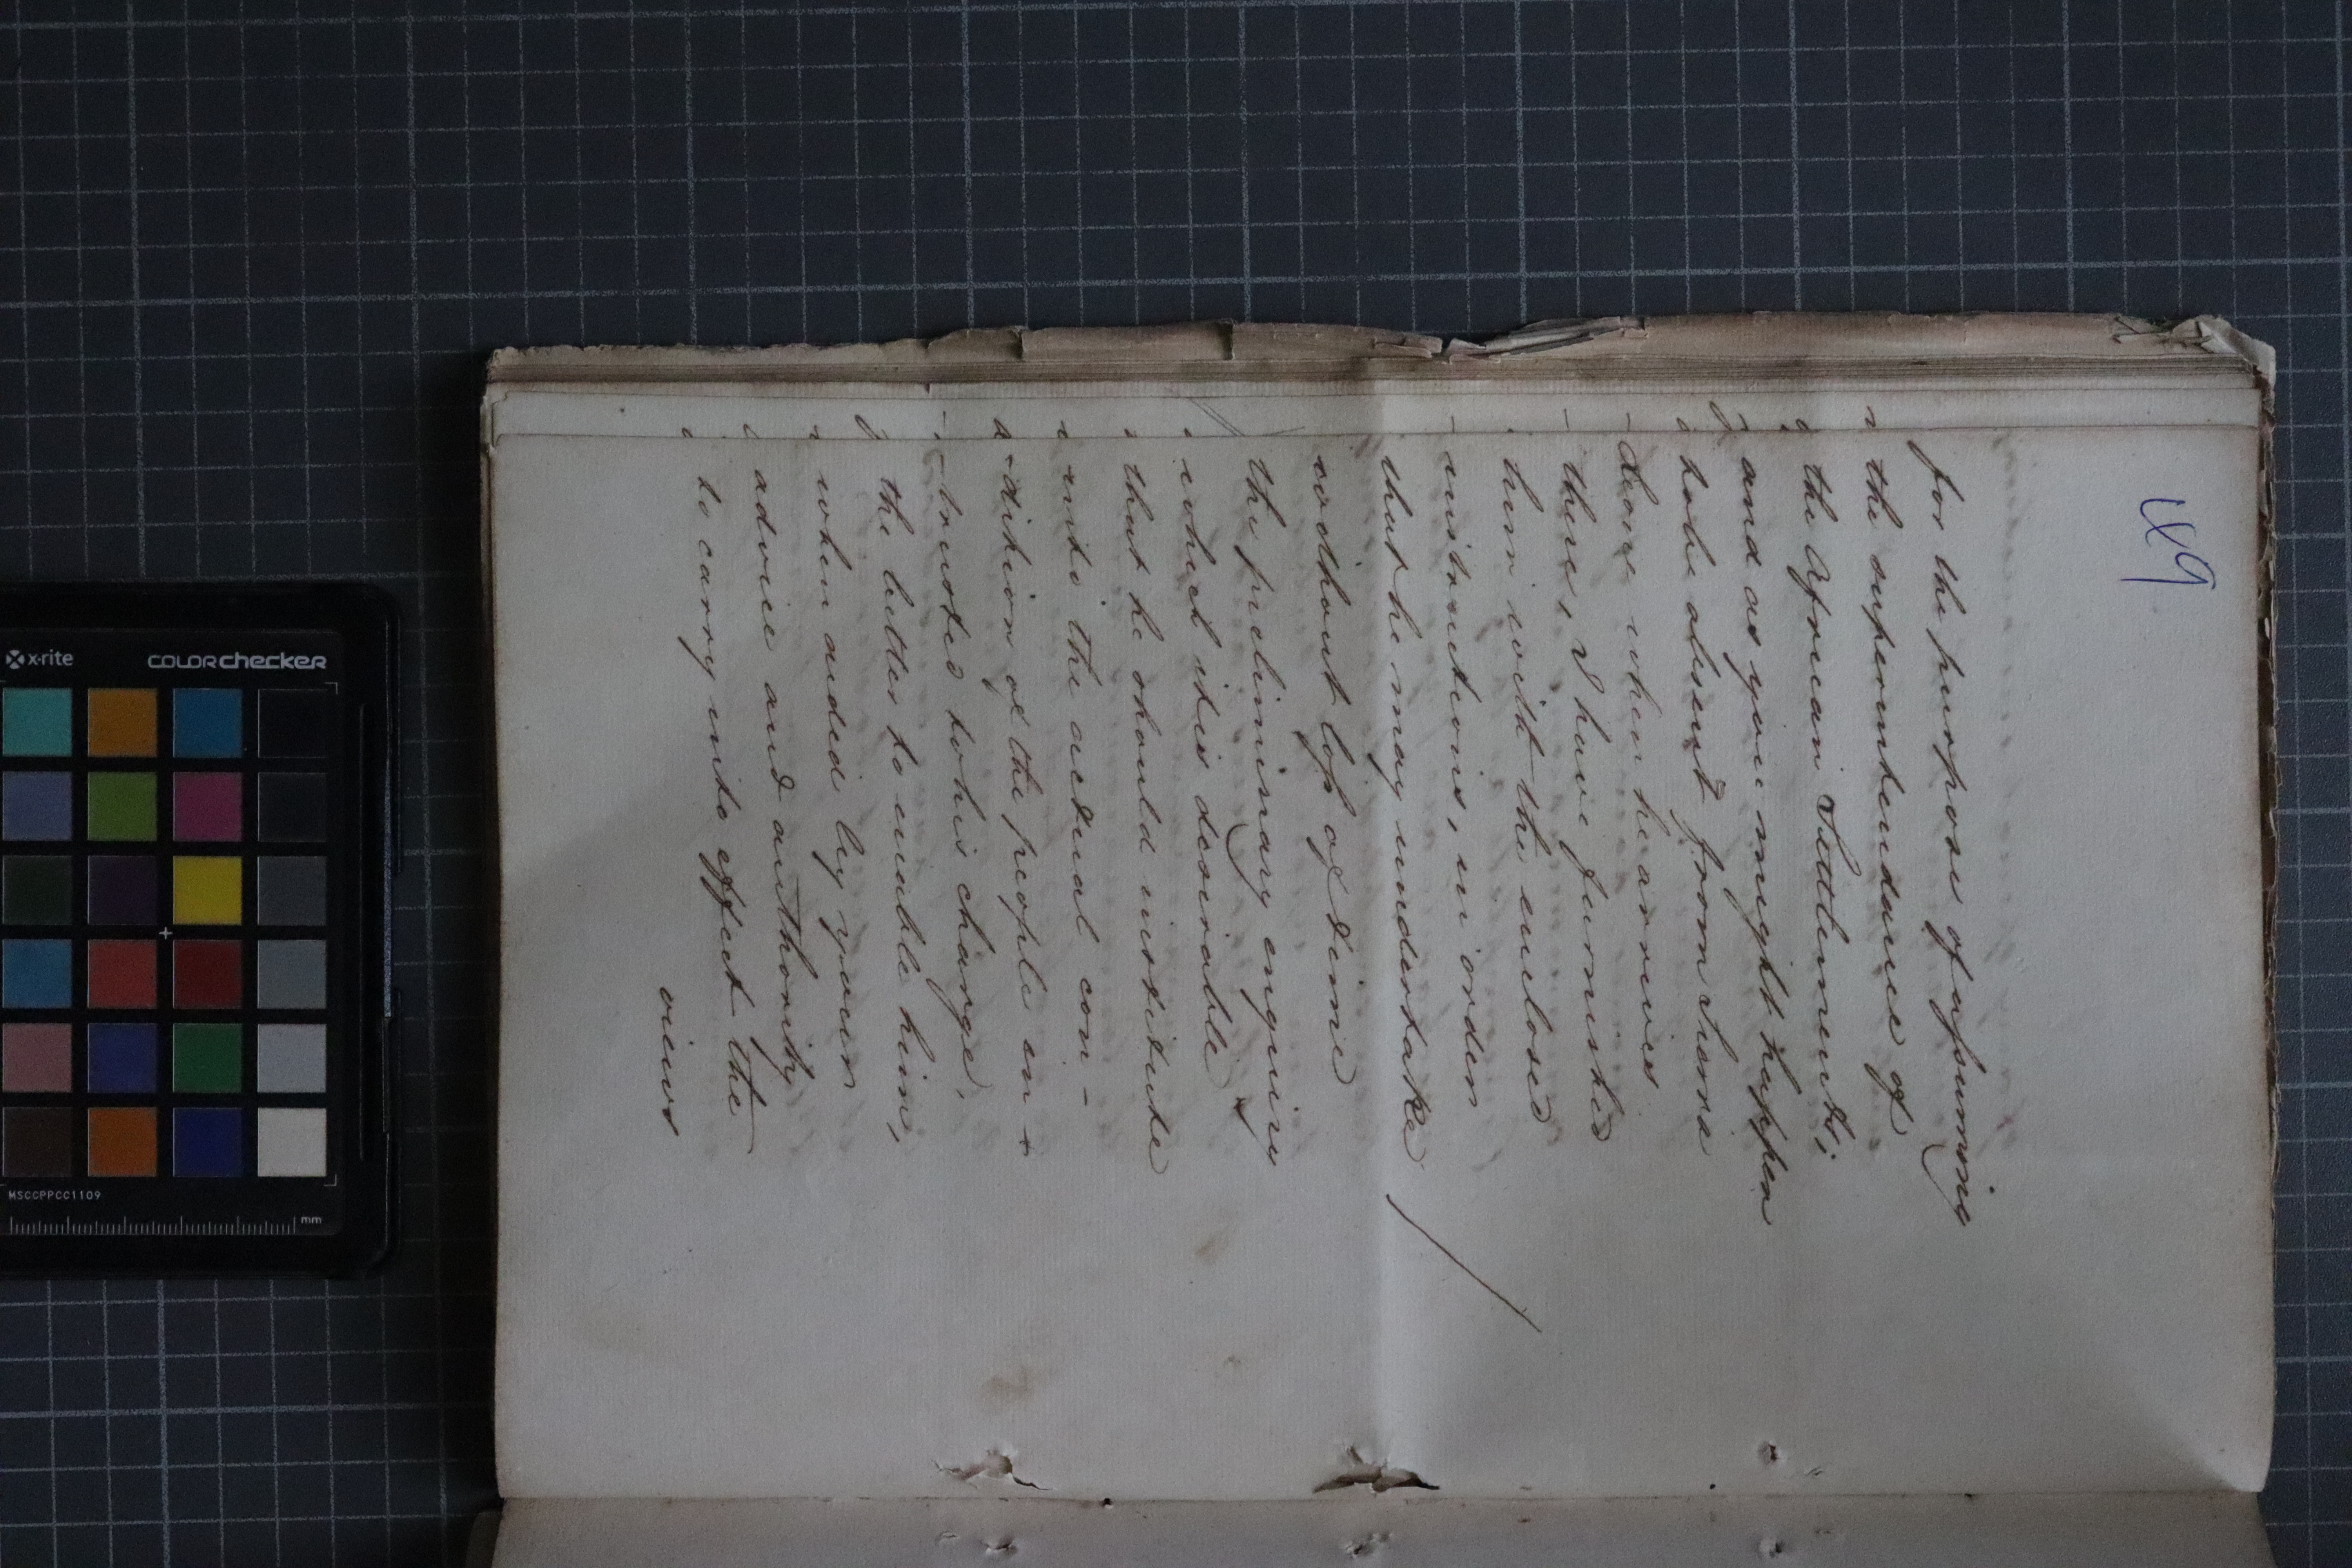 49
for the purpose of assuming
the superintendance of
the African Settlements;
and as you might happen
to be absent from Sierra
- Leone when he arrives
there, I have furnished
him with the enclosed
instructions, in order
that he may undertake
without loss of time
the preliminary enquiry
which it is desirable
that he should institute
into the actual con -
- dition of the people en -
- trusted to his charge,
the better to enable him,
when aided by your
advice and authority
to carry into effect the
views
x-rite
colorchecker
MSCCPPCC1109
mm